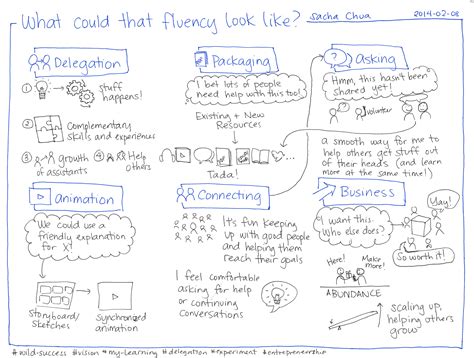 What could that fluency look like?
Sacha Chua
2014-02-08
Delegation
① stuff
happens!
② Complementary
skills and experiences
③ growth
of assistants
④ Help
others
Packaging
I bet lots of people
need help with this too!
Existing + New
Resources
Tada!
Asking
Hmm, this hasn't been
shared yet!
Volunteer
a smooth way for me to
help others get stuff out
of their heads (and learn
more at the same time!)
Animation
We could use a
friendly explanation
for X!
Storyboard/
Sketches
Synchronized
animation
Connecting
It's fun keeping
up with good people
and helping them
reach their goals
I feel comfortable
asking for help
or continuing
conversations
Business
I want this.
Who else does?
Yay!
So worth it!
Here!
Make
more!
ABUNDANCE
scaling up,
helping others
grow
#wild-success #vision #my-learning #delegation #experiment #entrepreneurship